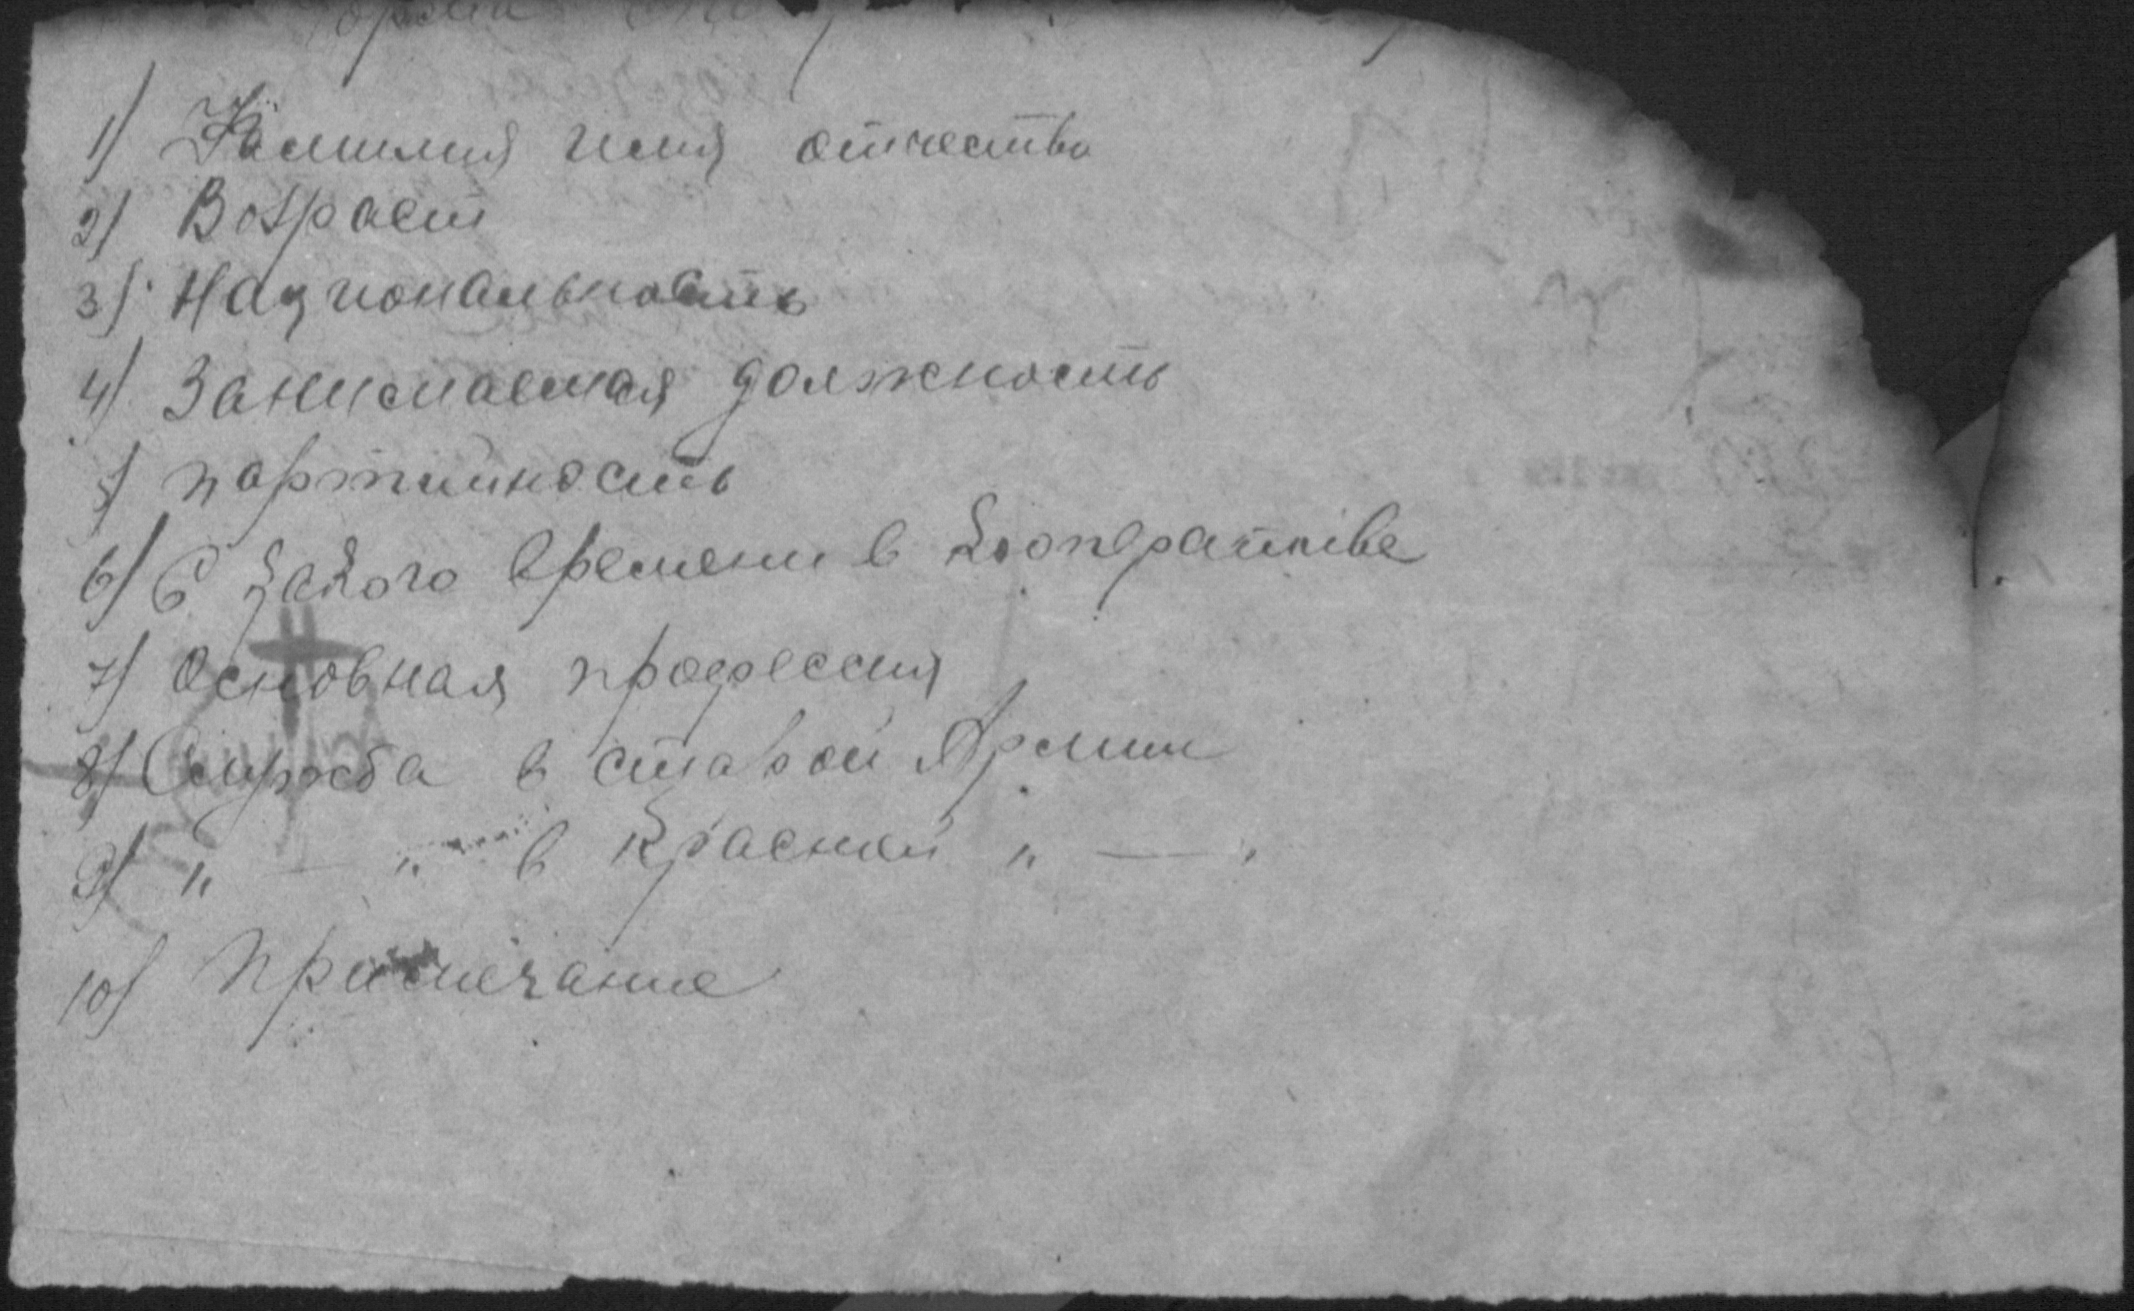 Форма
1) Фамилия имя отчество
2) Возраст
3) Национальность
4) Занимаемая должность
5) партийность
6) С какого времени в кооперативе
7) Основная профессия
8) Служба в старой Армии
9) " — " в Красной " — "
10) Примечание